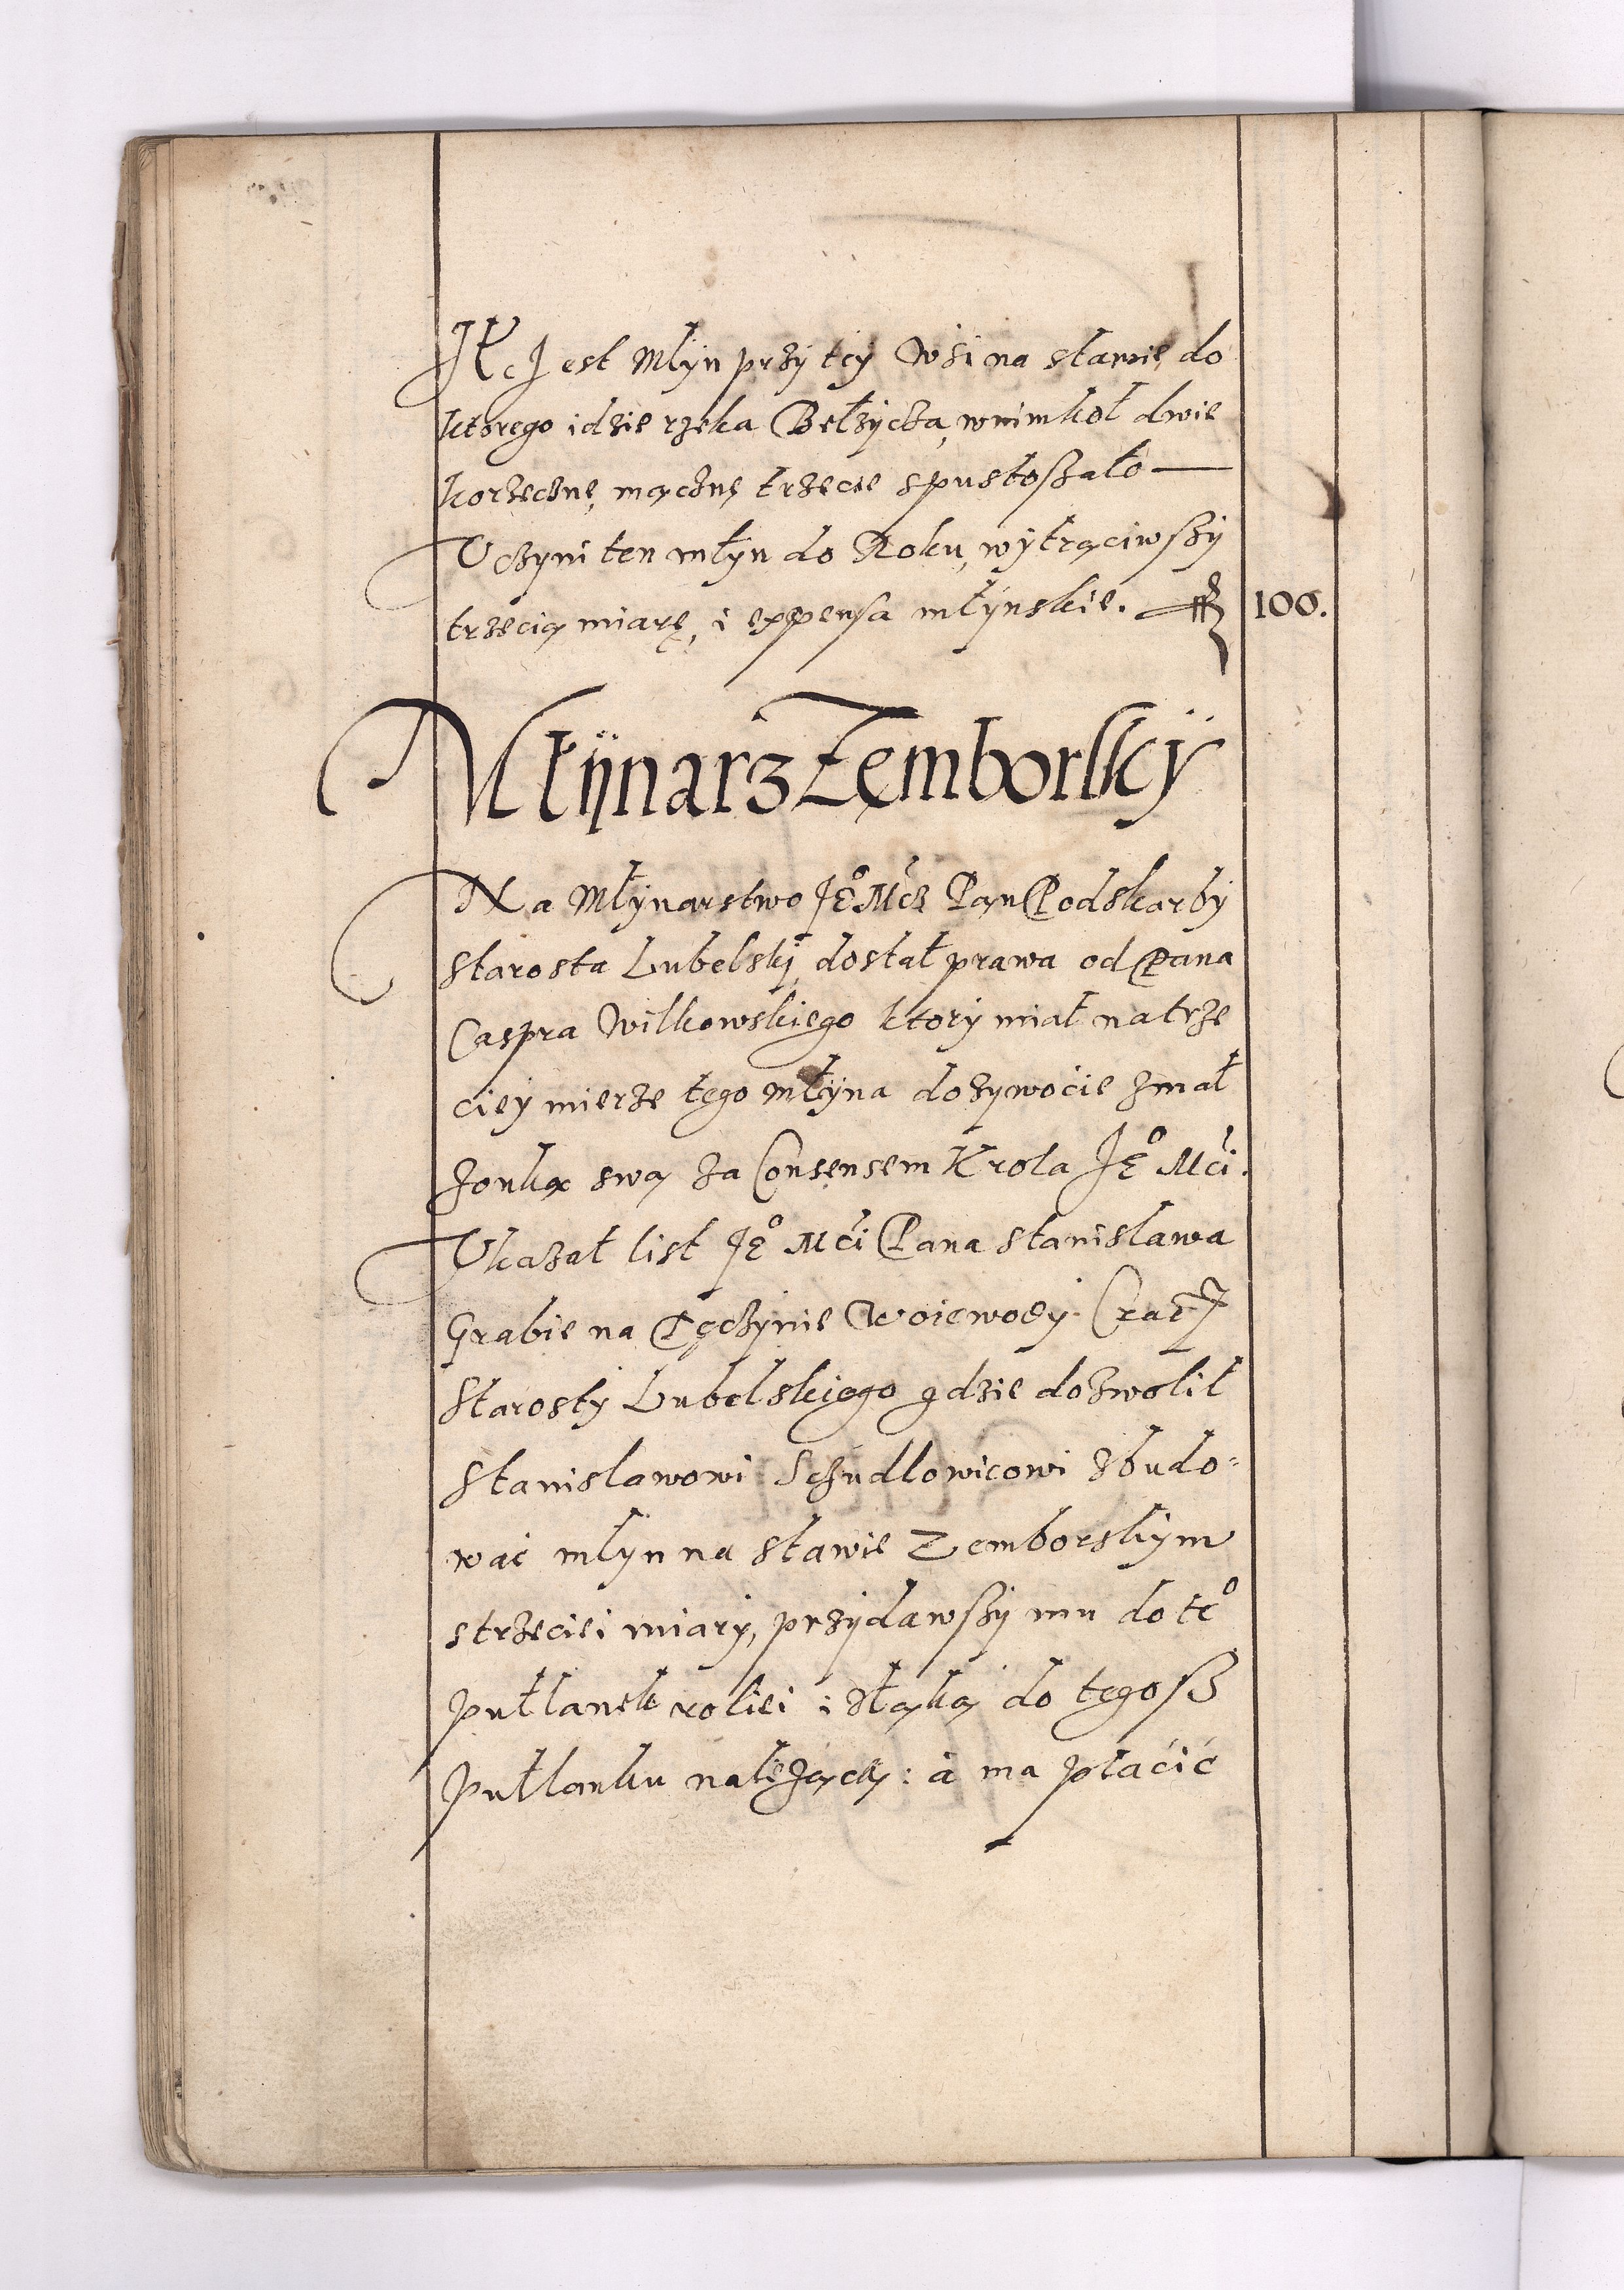 Jtc Jest Młÿn przÿ tcÿ Wsi na stawie, do
ktorego idzie rzeka Bełzycka, w nim koł dwie
korzecznę, mączną trzecie spustoszało —
Vczyni ten młyn do Roku, wÿtrąciwszÿ
trzecią miarę, i expensa młÿnskie. fl 100.
Młÿnarz Zęmborskÿ
Na Młÿnarstwo Jeº Mcz Pan Podskarbÿ
Starosta Lubelskÿ, dostał prawa od Pana
Caspra Wilkowskiego ktorÿ miał na trze
cieÿ mierze tego młÿna dozÿwocie z mał
zonką swą za Consensem Krola Jeº Mci.
Vkazał list Jeº Mci Pana Stanisława
Grabie na Tęczÿnie Woiewodÿ Crac
Starostÿ Lubelskiego gdzie dozwolił
Stanisławowi Schudlowicowi zbudo=
wac młÿn na Stawie Zemborskÿm
s trzeciei miarÿ, przÿdawszÿ mu do tº
pułlanek roliei i Łąką do tegosz
Pułlanku nalezącą: a ma płacić